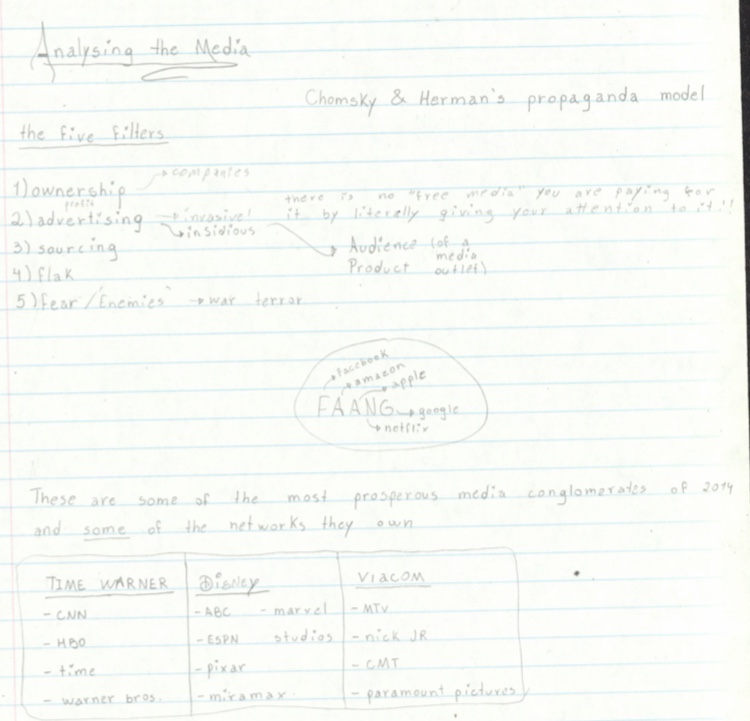 Analysing the Media
Chomsky & Herman's propaganda model
the five filters
companies
1) ownership
profit
there is no "free media" you are paying for
2) advertising → invasive! it by literally giving your attention to it!!
→ insidious
3) sourcing
Audience (of a
media
4) flak
Product outlet)
5) Fear / "Enemies" → war terror
facebook
amazon
apple
FAANG → google
netflix
These are some of the most prosperous media conglomerates of 2014
and some of the networks they own
TIME WARNER Disney VIACOM
- CNN - ABC - marvel - MTV
- HBO - ESPN studios - nick JR
- time - pixar - CMT
- warner bros. - miramax. - paramount pictures